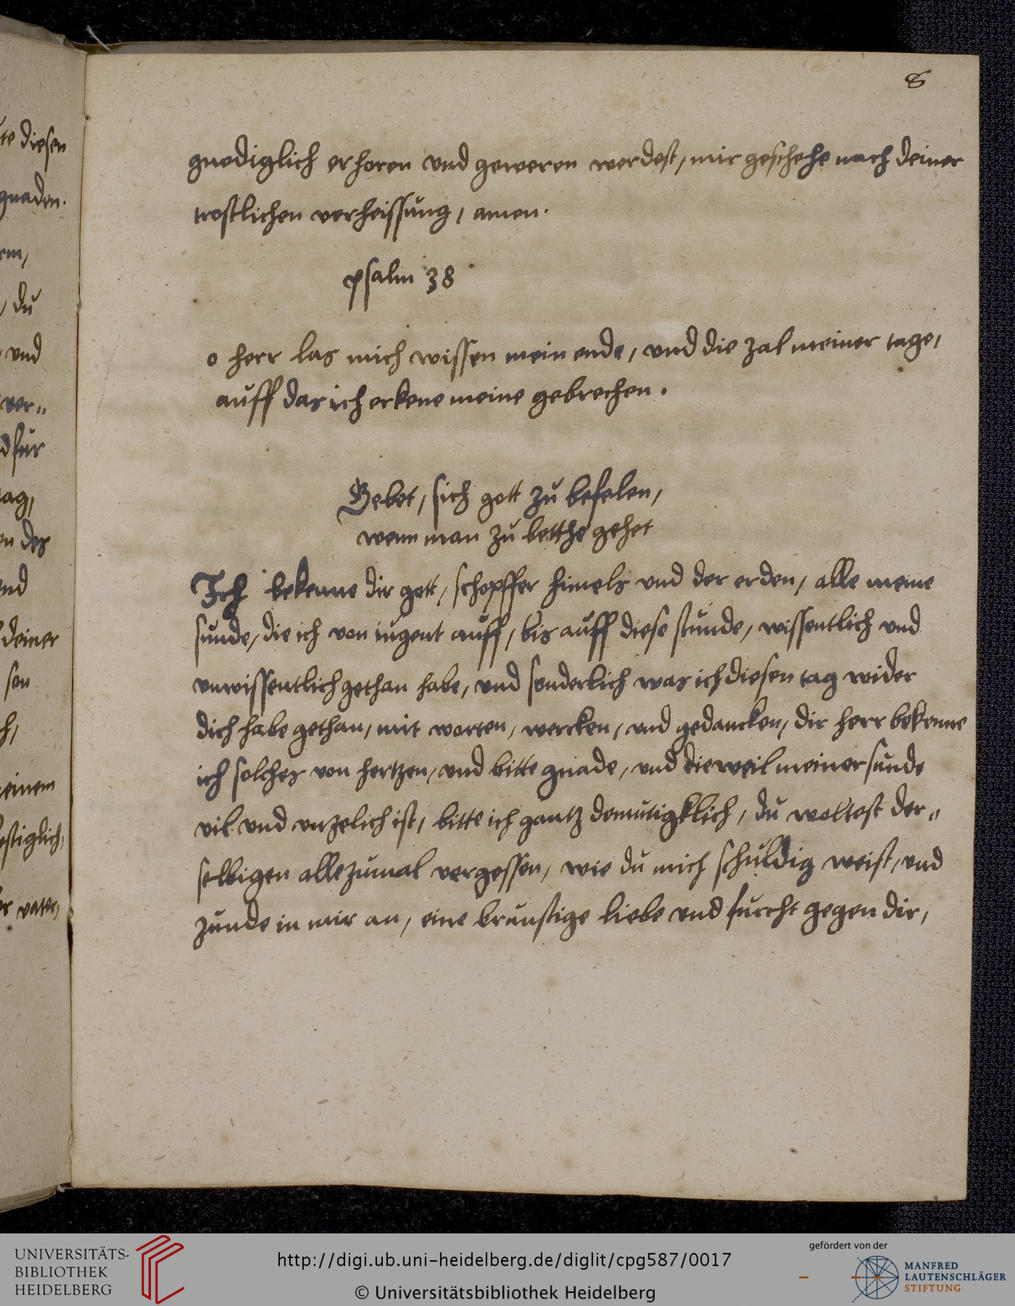 8
gnediglich erhoren vnd geweren werdest, mir geschehe nach deiner
trostlichen verheissung, amen.
psalm 38
o herr las mich wissen mein ende, vnd die zal meiner tage,
auff das ich erkene meine gebrechen.
Gebet, sich gott zu befelen,
wenn man zu betthe gehet
Ich bekenne dir gott, schopffer himels vnd der erden, alle meine
sunde, die ich von iugent auff, bis auff diese stunde, wissentlich vnd
vnwissentlich gethan habe, vnd sonderlich was ich diesen tag wider
dich habe gethan, mit worten, wercken, vnd gedancken, dir herr bekenne
ich solches von hertzen, vnd bitte gnade, vnd dieweil meiner sunde
vil vnd vnzelich ist, bitte ich gantz demutigklich, du wollest der„
selbigen allezumal vergessen, wie du mich schuldig weist, vnd
zunde in mir an, eine brunstige liebe vnd furcht gegen dir,
te diesen
gnaden.
, du
, vnd
ver„
d fur
tag,
en des
vnd
deiner
sen
h,
einem
estiglich,
er vater,
UNIVERSITÄTS-
BIBLIOTHEK
HEIDELBERG
http://digi.ub.uni-heidelberg.de/diglit/cpg587/0017
© Universitätsbibliothek Heidelberg
gefördert von der
MANFRED
LAUTENSCHLÄGER
STIFTUNG